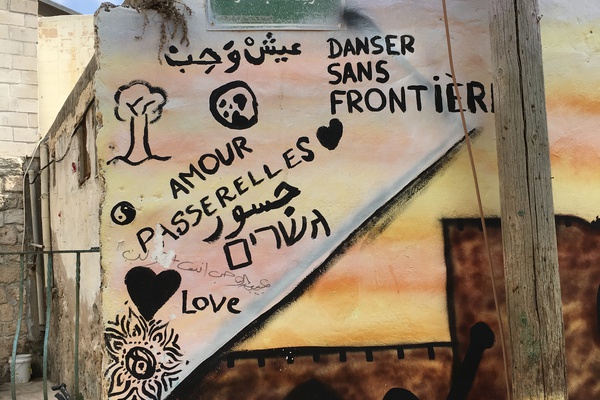 عيش وَحِب
DANSER
SANS
FRONTiÈR
AMOUR
PASSERELLES
جسور
גשרים
Love